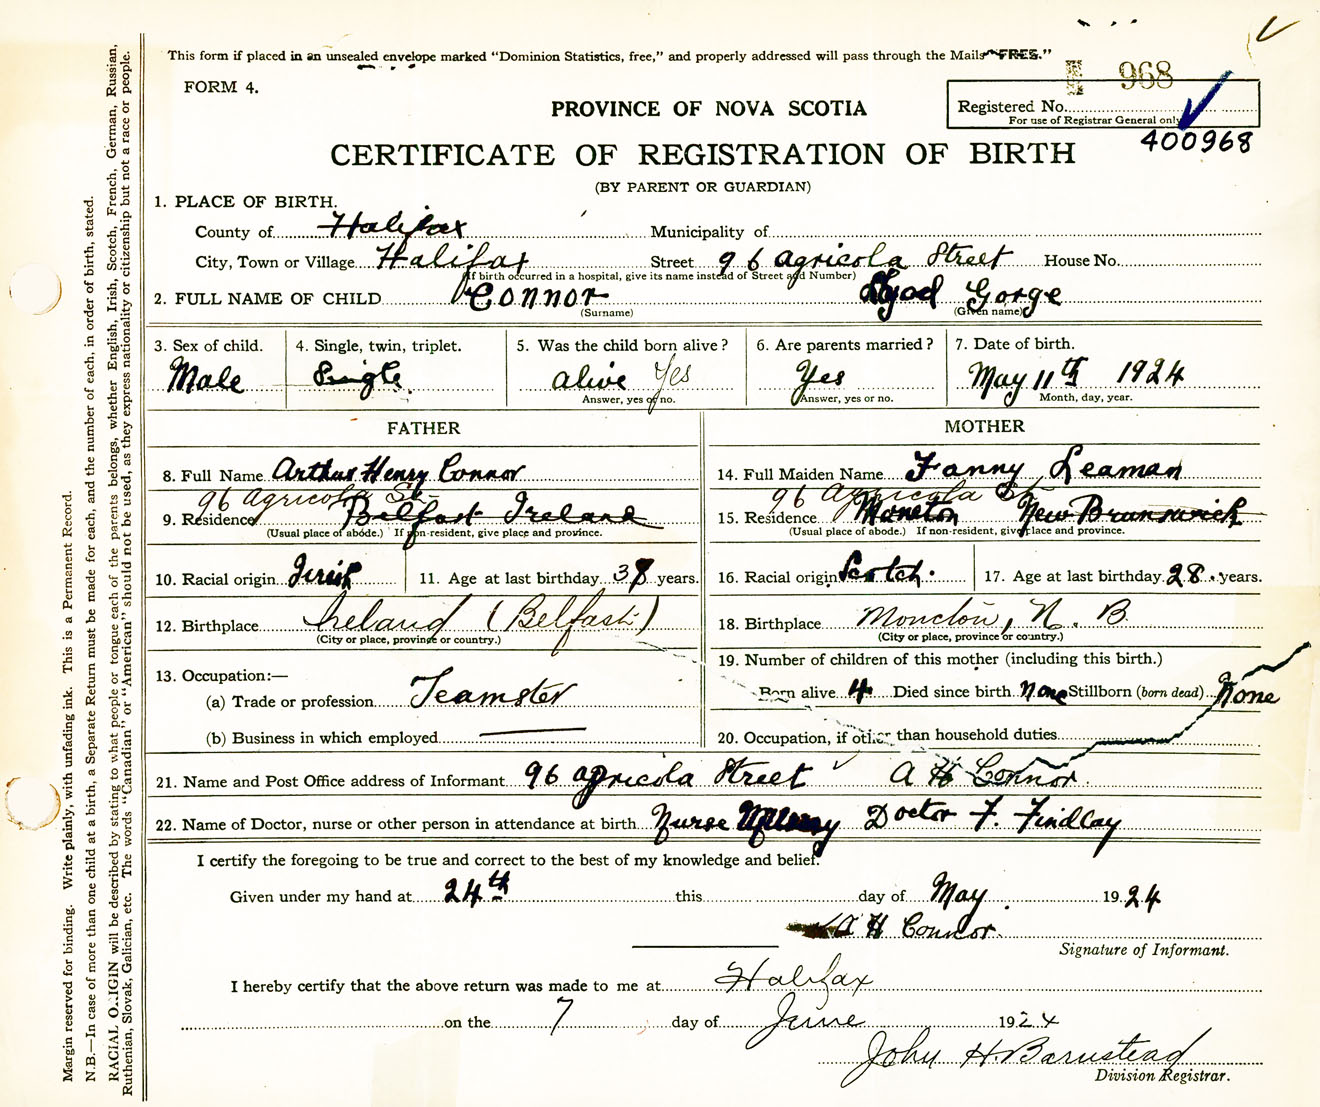 This form if placed in an unsealed envelope marked “Dominion Statistics, free,” and properly addressed will pass through the Mails “FREE.”
FORM 4.
968
PROVINCE OF NOVA SCOTIA
Registered No.
For use of Registrar General only
400968
CERTIFICATE OF REGISTRATION OF BIRTH
(BY PARENT OR GUARDIAN)
1. PLACE OF BIRTH.
County of Halifax Municipality of
City, Town or Village Halifax Street 96 Agricola Street House No.
(If birth occurred in a hospital, give its name instead of Street and Number)
2. FULL NAME OF CHILD Connor Lyod Gorge
(Surname) (Given name)
3. Sex of child. 4. Single, twin, triplet. 5. Was the child born alive? 6. Are parents married? 7. Date of birth.
Male Single. alive Yes Yes May 11th 1924
Answer, yes or no. Answer, yes or no. Month, day, year.
FATHER MOTHER
8. Full Name Arthur Henry Connor 14. Full Maiden Name Fanny Leaman
96 Agricola St. 96 Agricola St.
9. Residence Belfast Ireland 15. Residence Moncton New Brunswick
(Usual place of abode.) If non-resident, give place and province. (Usual place of abode.) If non-resident, give place and province.
10. Racial origin Irish 11. Age at last birthday 38 years. 16. Racial origin Scotch. 17. Age at last birthday 28 years.
12. Birthplace Ireland (Belfast) 18. Birthplace Moncton, N. B
(City or place, province or country.) (City or place, province or country.)
13. Occupation:— 19. Number of children of this mother (including this birth.)
(a) Trade or profession Teamster Born alive 4 Died since birth None Stillborn (born dead) None
(b) Business in which employed 20. Occupation, if other than household duties
21. Name and Post Office address of Informant 96 Agricola Street A H Connor.
22. Name of Doctor, nurse or other person in attendance at birth Nurse Doctor F. Findlay
I certify the foregoing to be true and correct to the best of my knowledge and belief.
Given under my hand at 24th this day of May 1924
A H Connor.
Signature of Informant.
I hereby certify that the above return was made to me at Halifax
on the 7 day of June 1924
John H. Barnstead
Division Registrar.
Margin reserved for binding. Write plainly, with unfading ink. This is a Permanent Record.
N.B.—In case of more than one child at a birth, a Separate Return must be made for each, and the number of each, in order of birth, stated.
RACIAL ORIGIN will be described by stating to what people or tongue each of the parents belongs, whether English, Irish, Scotch, French, German, Russian,
Ruthenian, Slovak, Galician, etc. The words “Canadian” or “American” should not be used, as they express nationality or citizenship but not a race or people.